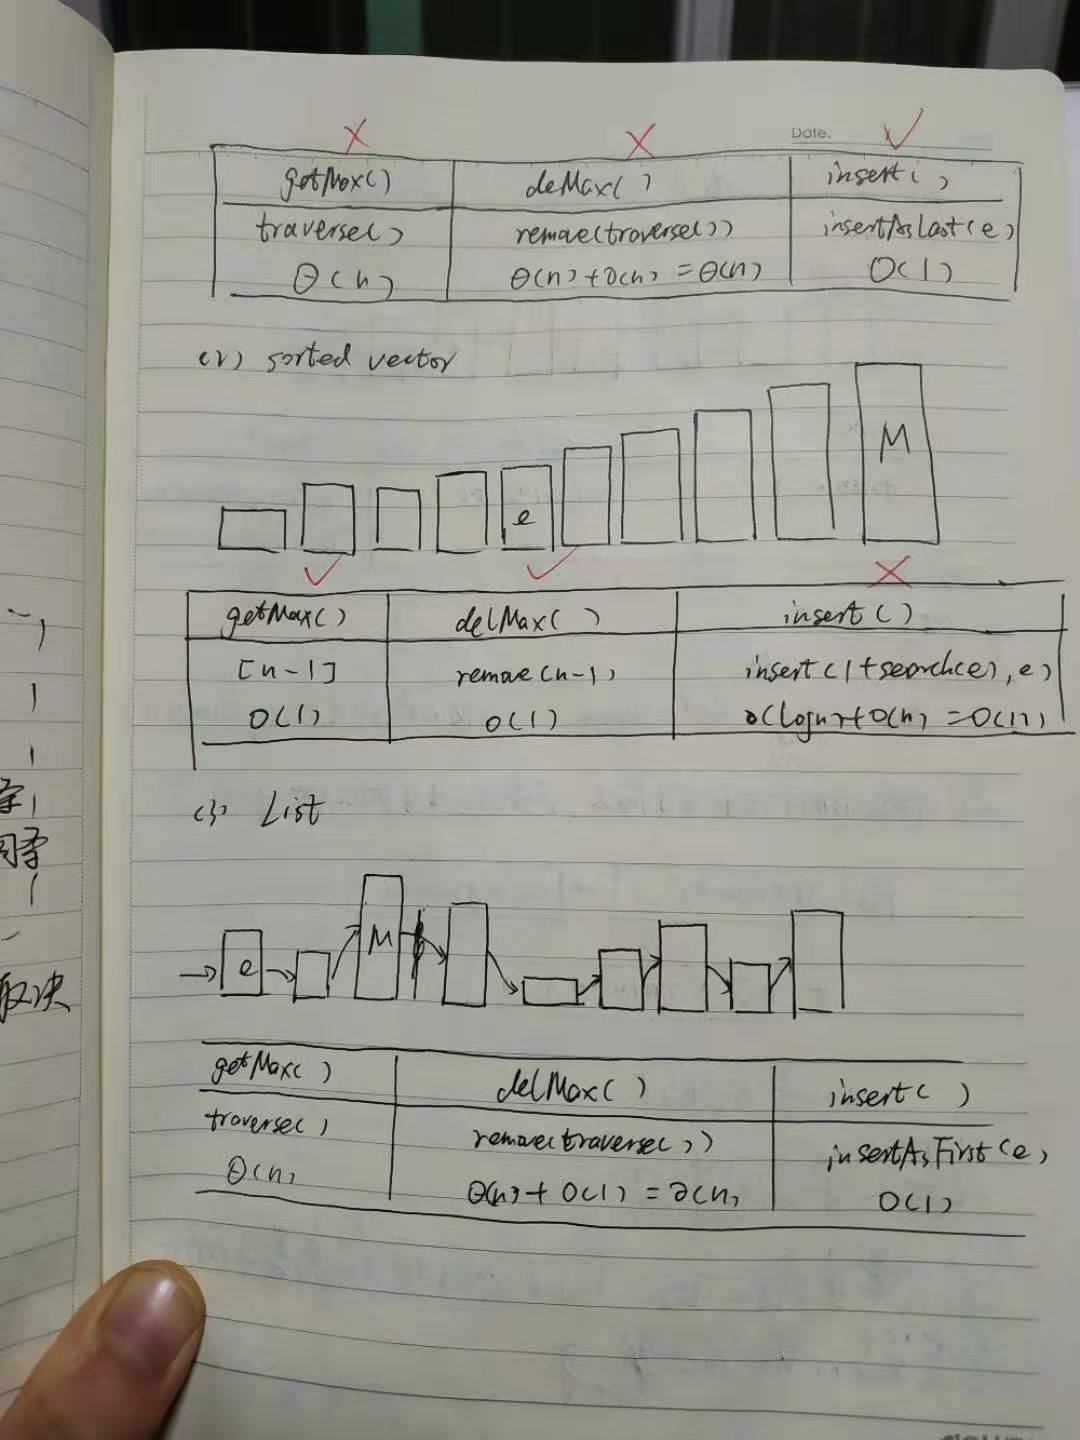 Date.
getMax() deMax() insert()
traverse() remove(traverse()) insertAsLast(e)
Θ(n) Θ(n)+O(n)=Θ(n) O(1)
(2) sorted vector
M
e
getMax() delMax() insert()
[n-1] remove(n-1) insert(1+search(e),e)
O(1) O(1) O(logn)+O(n)=O(n)
(3) List
e M
getMax() delMax() insert()
traverse() remove(traverse()) insertAsFirst(e)
Θ(n) Θ(n)+O(1)=Θ(n) O(1)